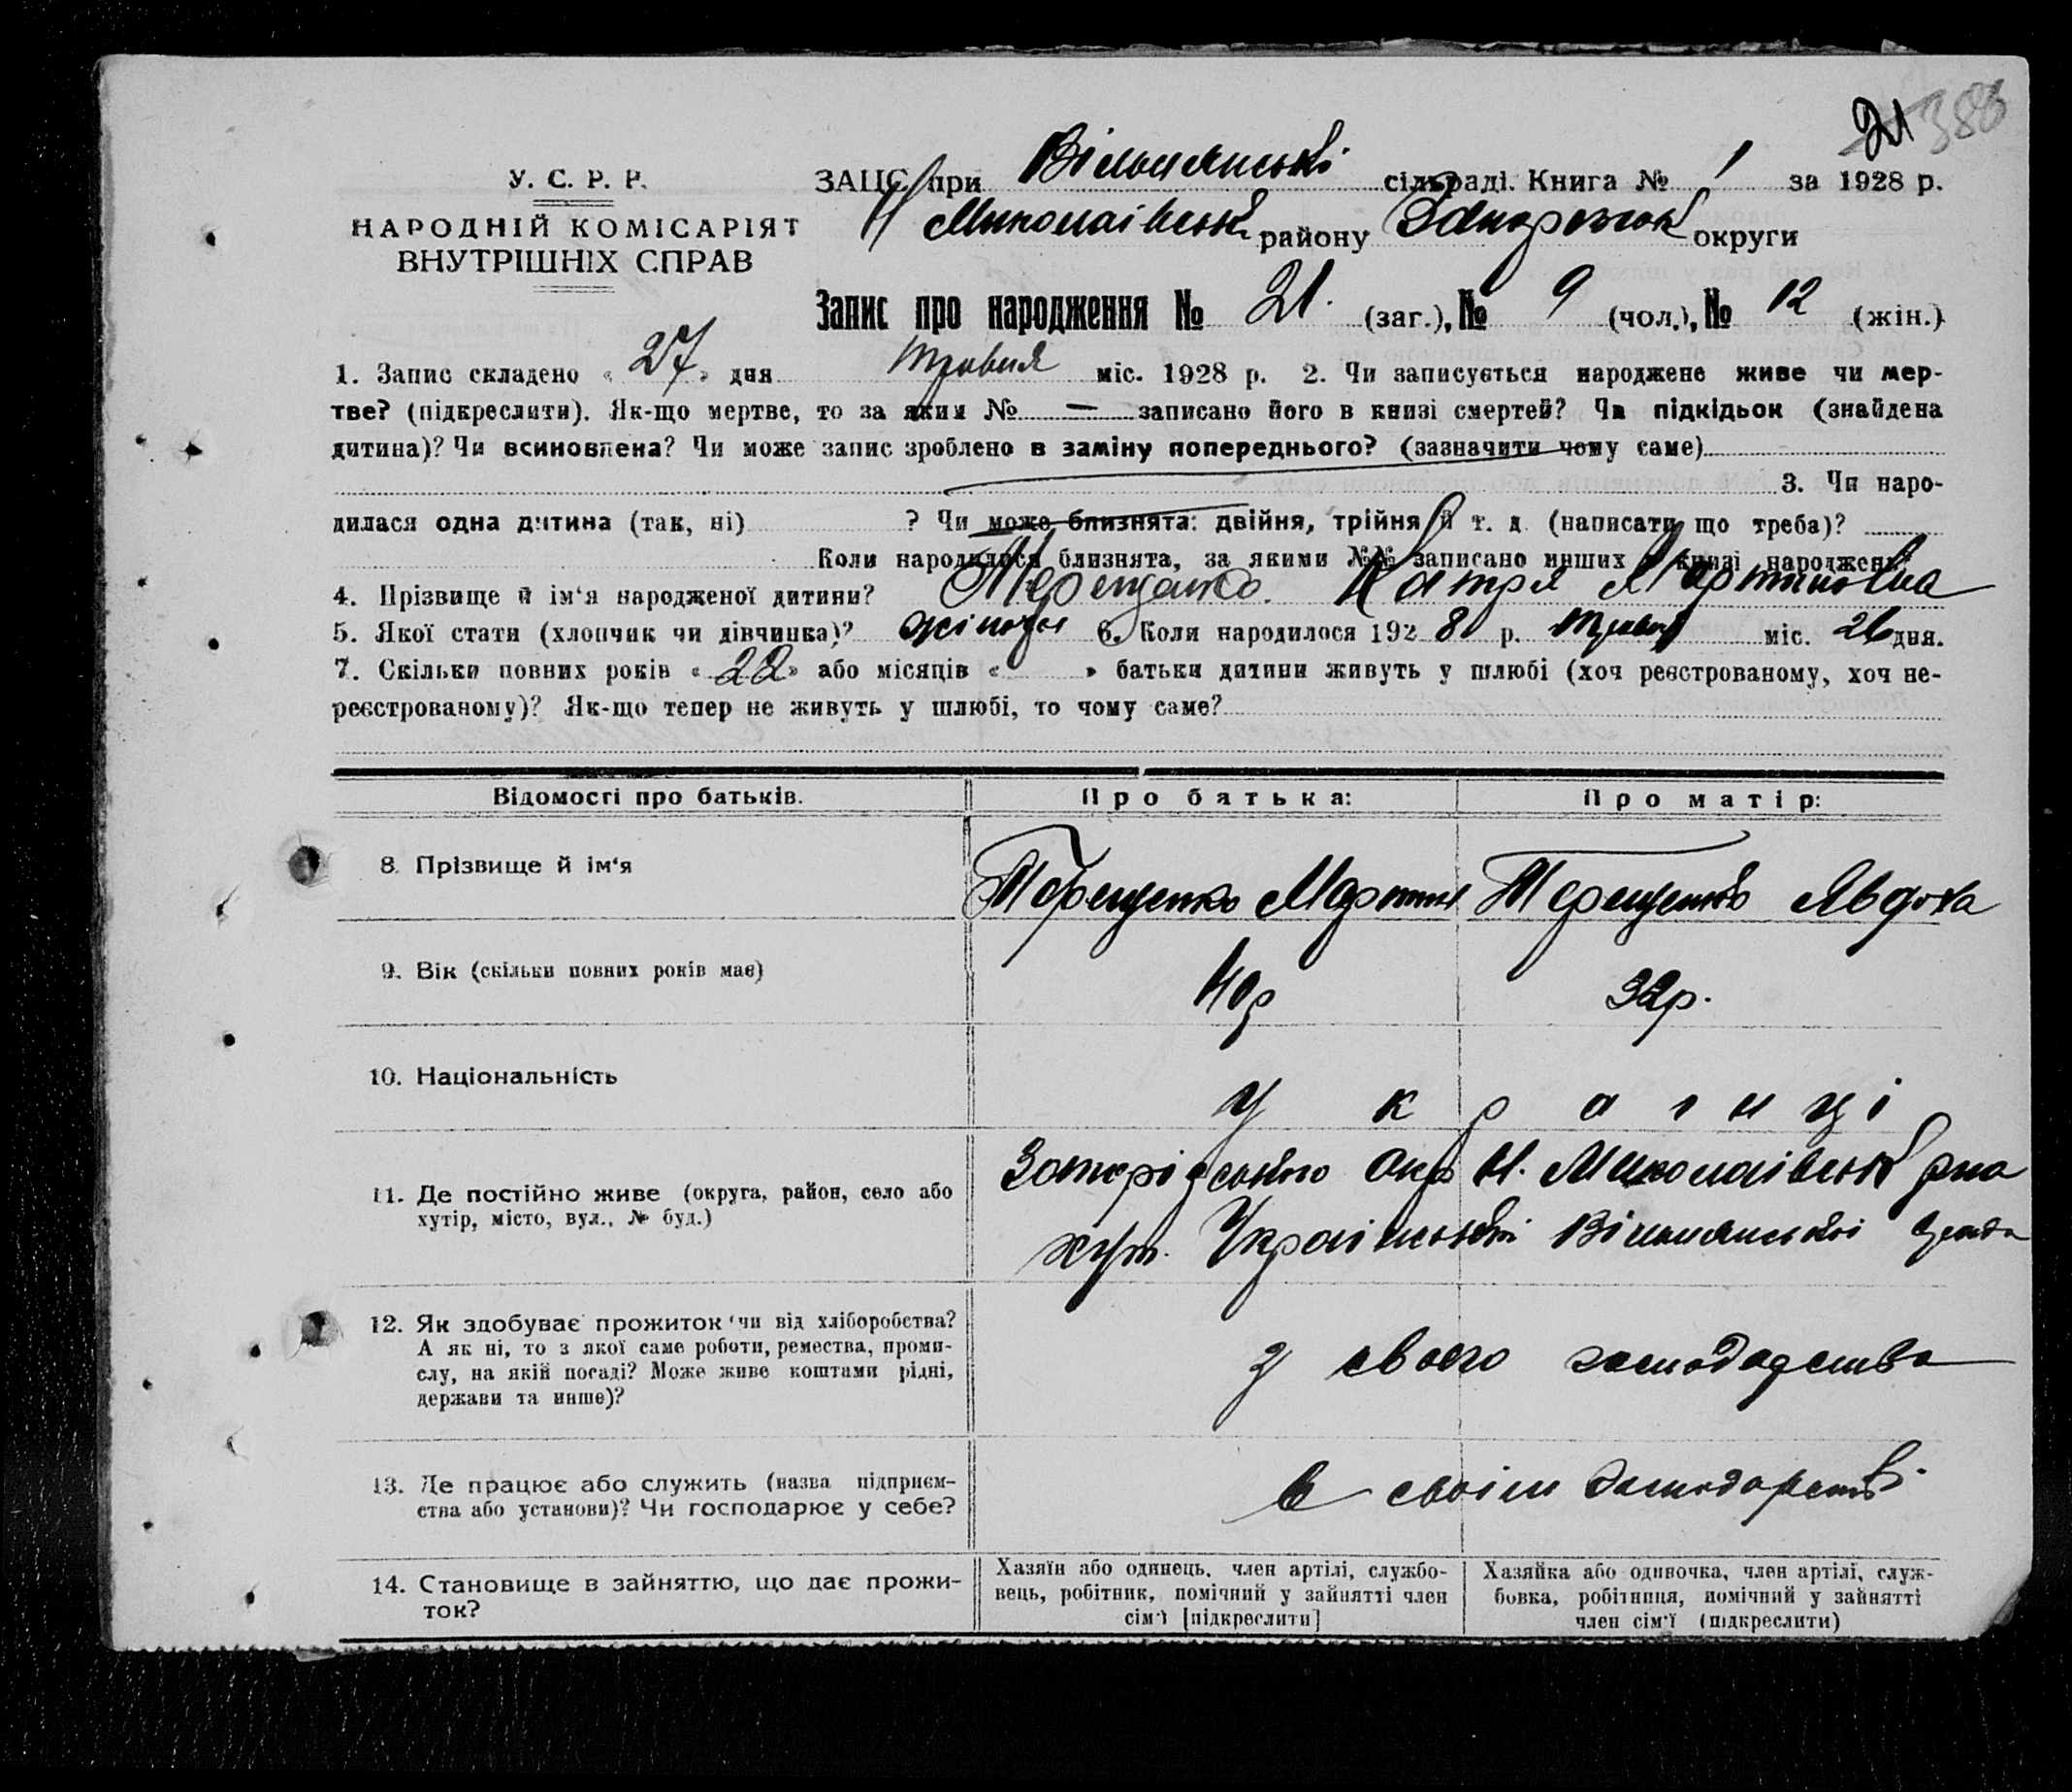 21 388
У. С. Р. Р.
НАРОДНІЙ КОМІСАРІЯТ
ВНУТРІШНІХ СПРАВ
ЗАЦС при Вільнянські сільраді. Книга № 1 за 1928 р.
Н Миколаївськ району Запорізьк округи
Запис про народження № 21. (заг.), № 9 (чол.), № 12 (жін.)
1. Запис складено « 27 » дня травня міс. 1928 р. 2. Чи записується народжене живе чи мер-
тве? (підкреслити). Як-що мертве, то за яким № — записано його в книзі смертей? Чи підкідьок (знайдена
дитина)? Чи всиновлена? Чи може запис зроблено в заміну попереднього? (зазначити чому саме)
3. Чи наро-
дилася одна дитина (так, ні) ? Чи може близнята: двійня, трійня й т. д. (написати що треба)?
Коли народилися близнята, за якими №№ записано инших в книзі народжень?
4. Прізвище й ім'я народженої дитини? Терещенко. Катря Мартиновна
5. Якої стати (хлопчик чи дівчинка)? жіночої 6. Коли народилося 192 8 р. травня міс. 26 дня.
7. Скільки повних років « 22 » або місяців « » батьки дитини живуть у шлюбі (хоч реєстрованому, хоч не-
реєстрованому)? Як-що тепер не живуть у шлюбі, то чому саме?
Відомості про батьків. Про батька: Про матір:
8. Прізвище й ім'я Терещенко Мартин Терещенко Явдоха
9. Вік (скільки повних років має) 40р 32р.
10. Національність Українці
11. Де постійно живе (округа, район, село або
хутір, місто, вул., № буд.)
Запорізького Окр Н. Миколаївськ рна
хут. Українські Вільнянської
12. Як здобуває прожиток чи від хліборобства?
А як ні, то з якої саме роботи, ремества, проми-
слу, на якій посаді? Може живе коштами рідні,
держави та инше)?
З свого господарства
13. Де працює або служить (назва підприєм-
ства або установи)? Чи господарює у себе?
В своїм господарстві
14. Становище в зайняттю, що дає прожи-
ток?
Хазяїн або одинець, член артілі, службо-
вець, робітник, помічний у зайнятті член
сім'ї [підкреслити]
Хазяйка або одиночка, член артілі, служ-
бовка, робітниця, помічний у зайнятті
член сім'ї (підкреслити)